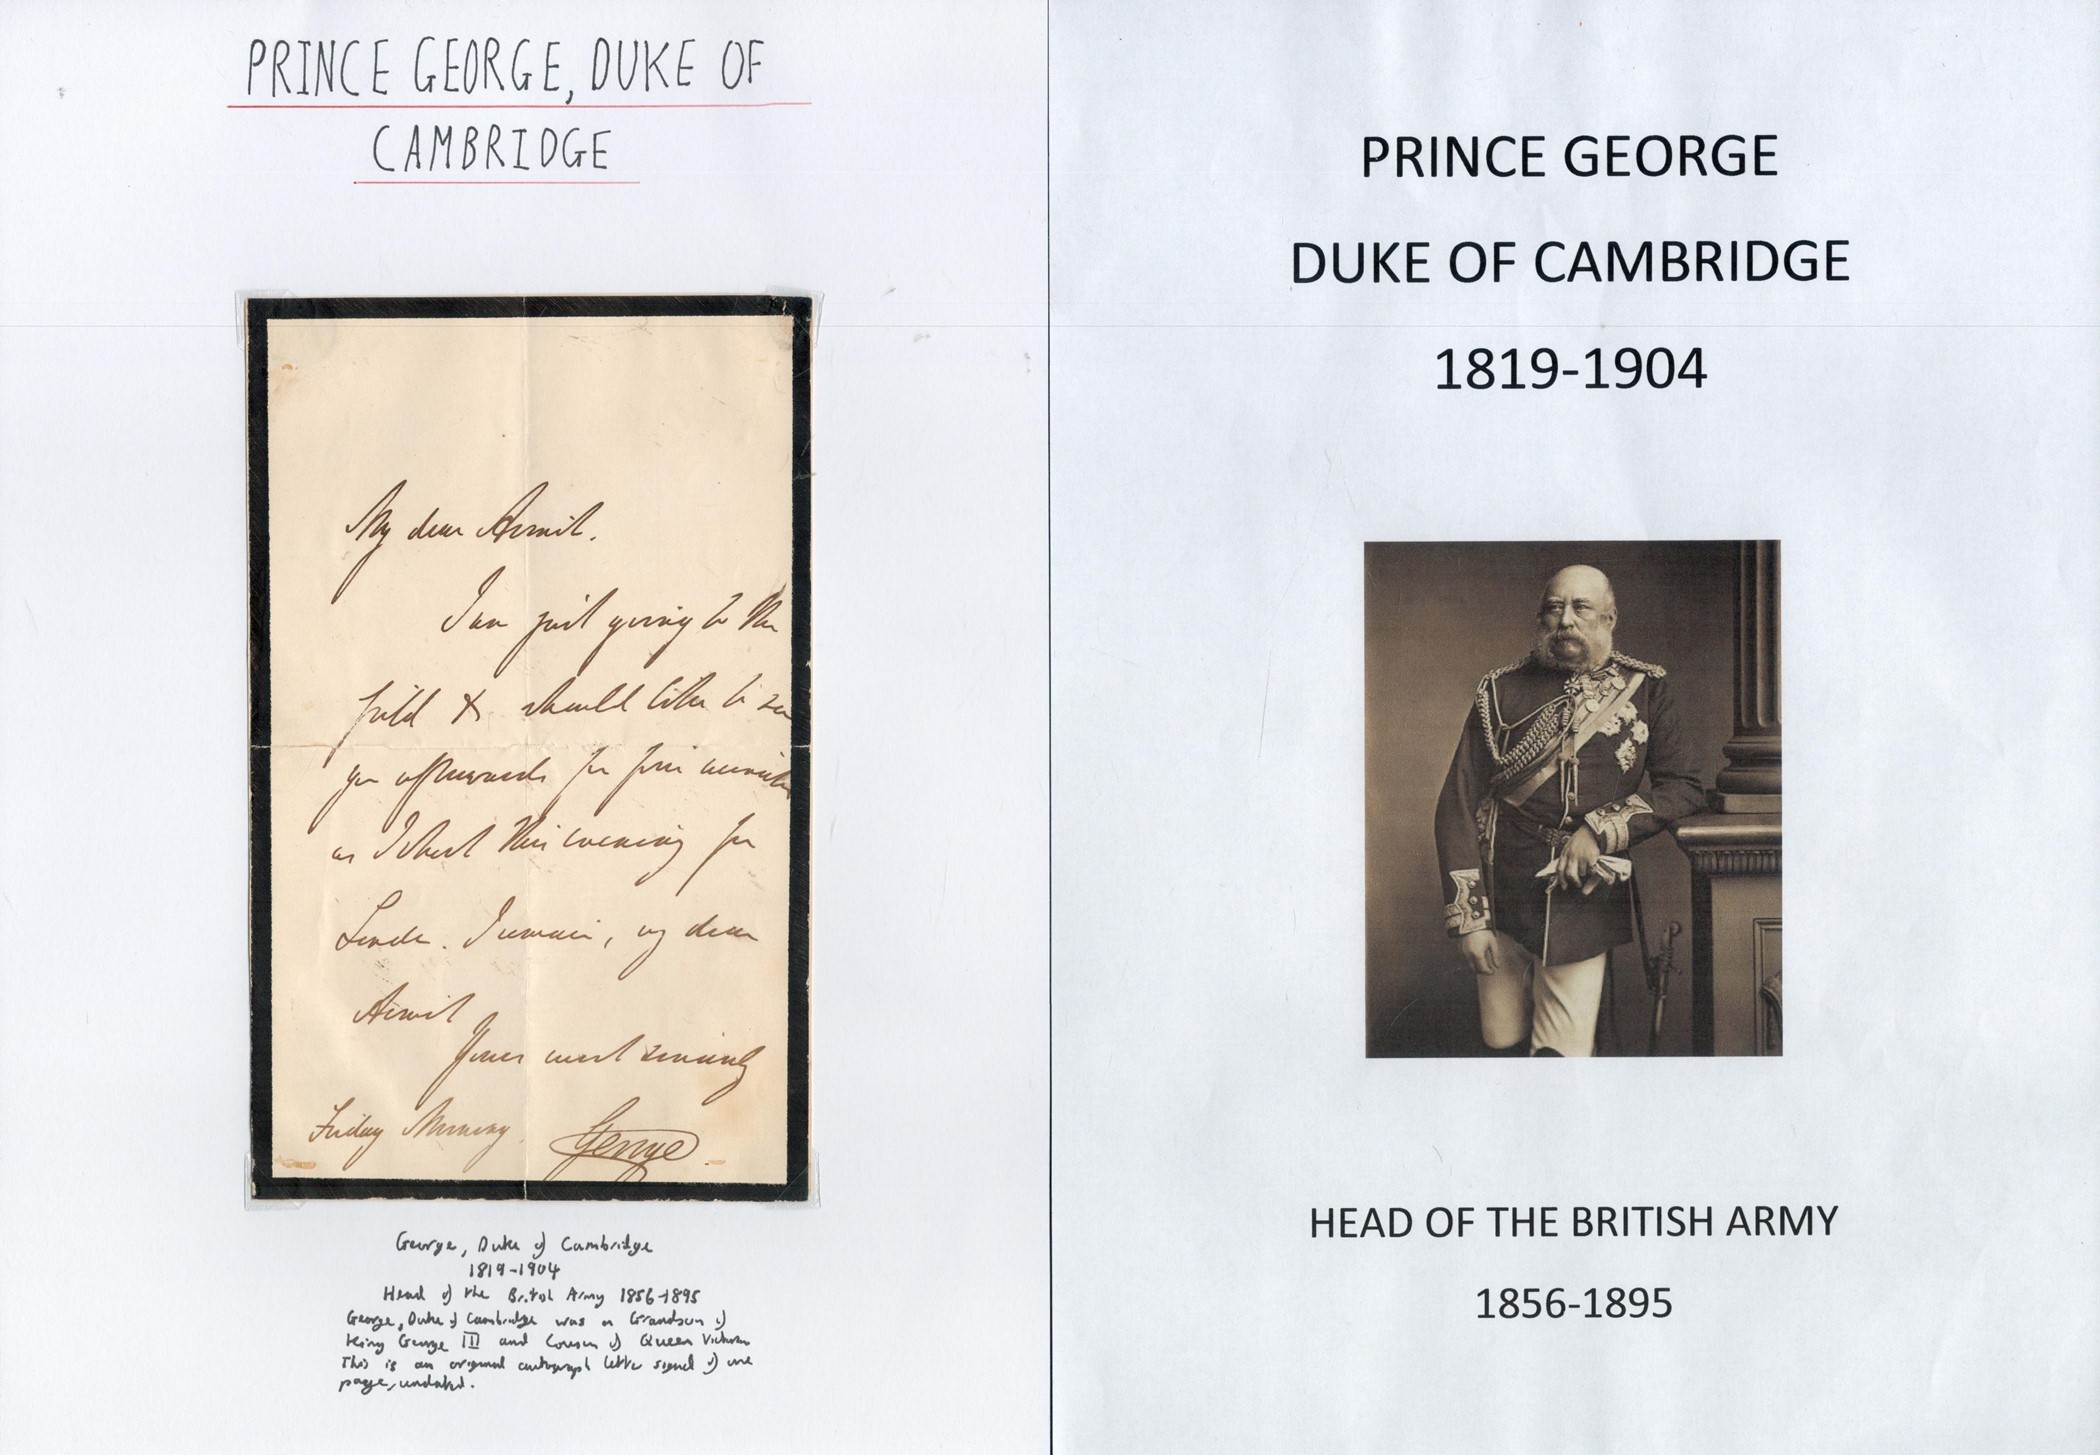 PRINCE GEORGE, DUKE OF
CAMBRIDGE
My dear Armit.
I am just going to the
field & should like to see
you afterwards for five minutes
as I start this evening for
I remain, my dear
Armit
Yours most sincerely
Friday Morning. George
George, Duke of Cambridge
1819-1904
Head of the British Army 1856-1895
George, Duke of Cambridge was a Grandson of
King George III and Cousin of Queen Victoria
This is an original autograph letter signed of one
page, undated.
PRINCE GEORGE
DUKE OF CAMBRIDGE
1819-1904
HEAD OF THE BRITISH ARMY
1856-1895